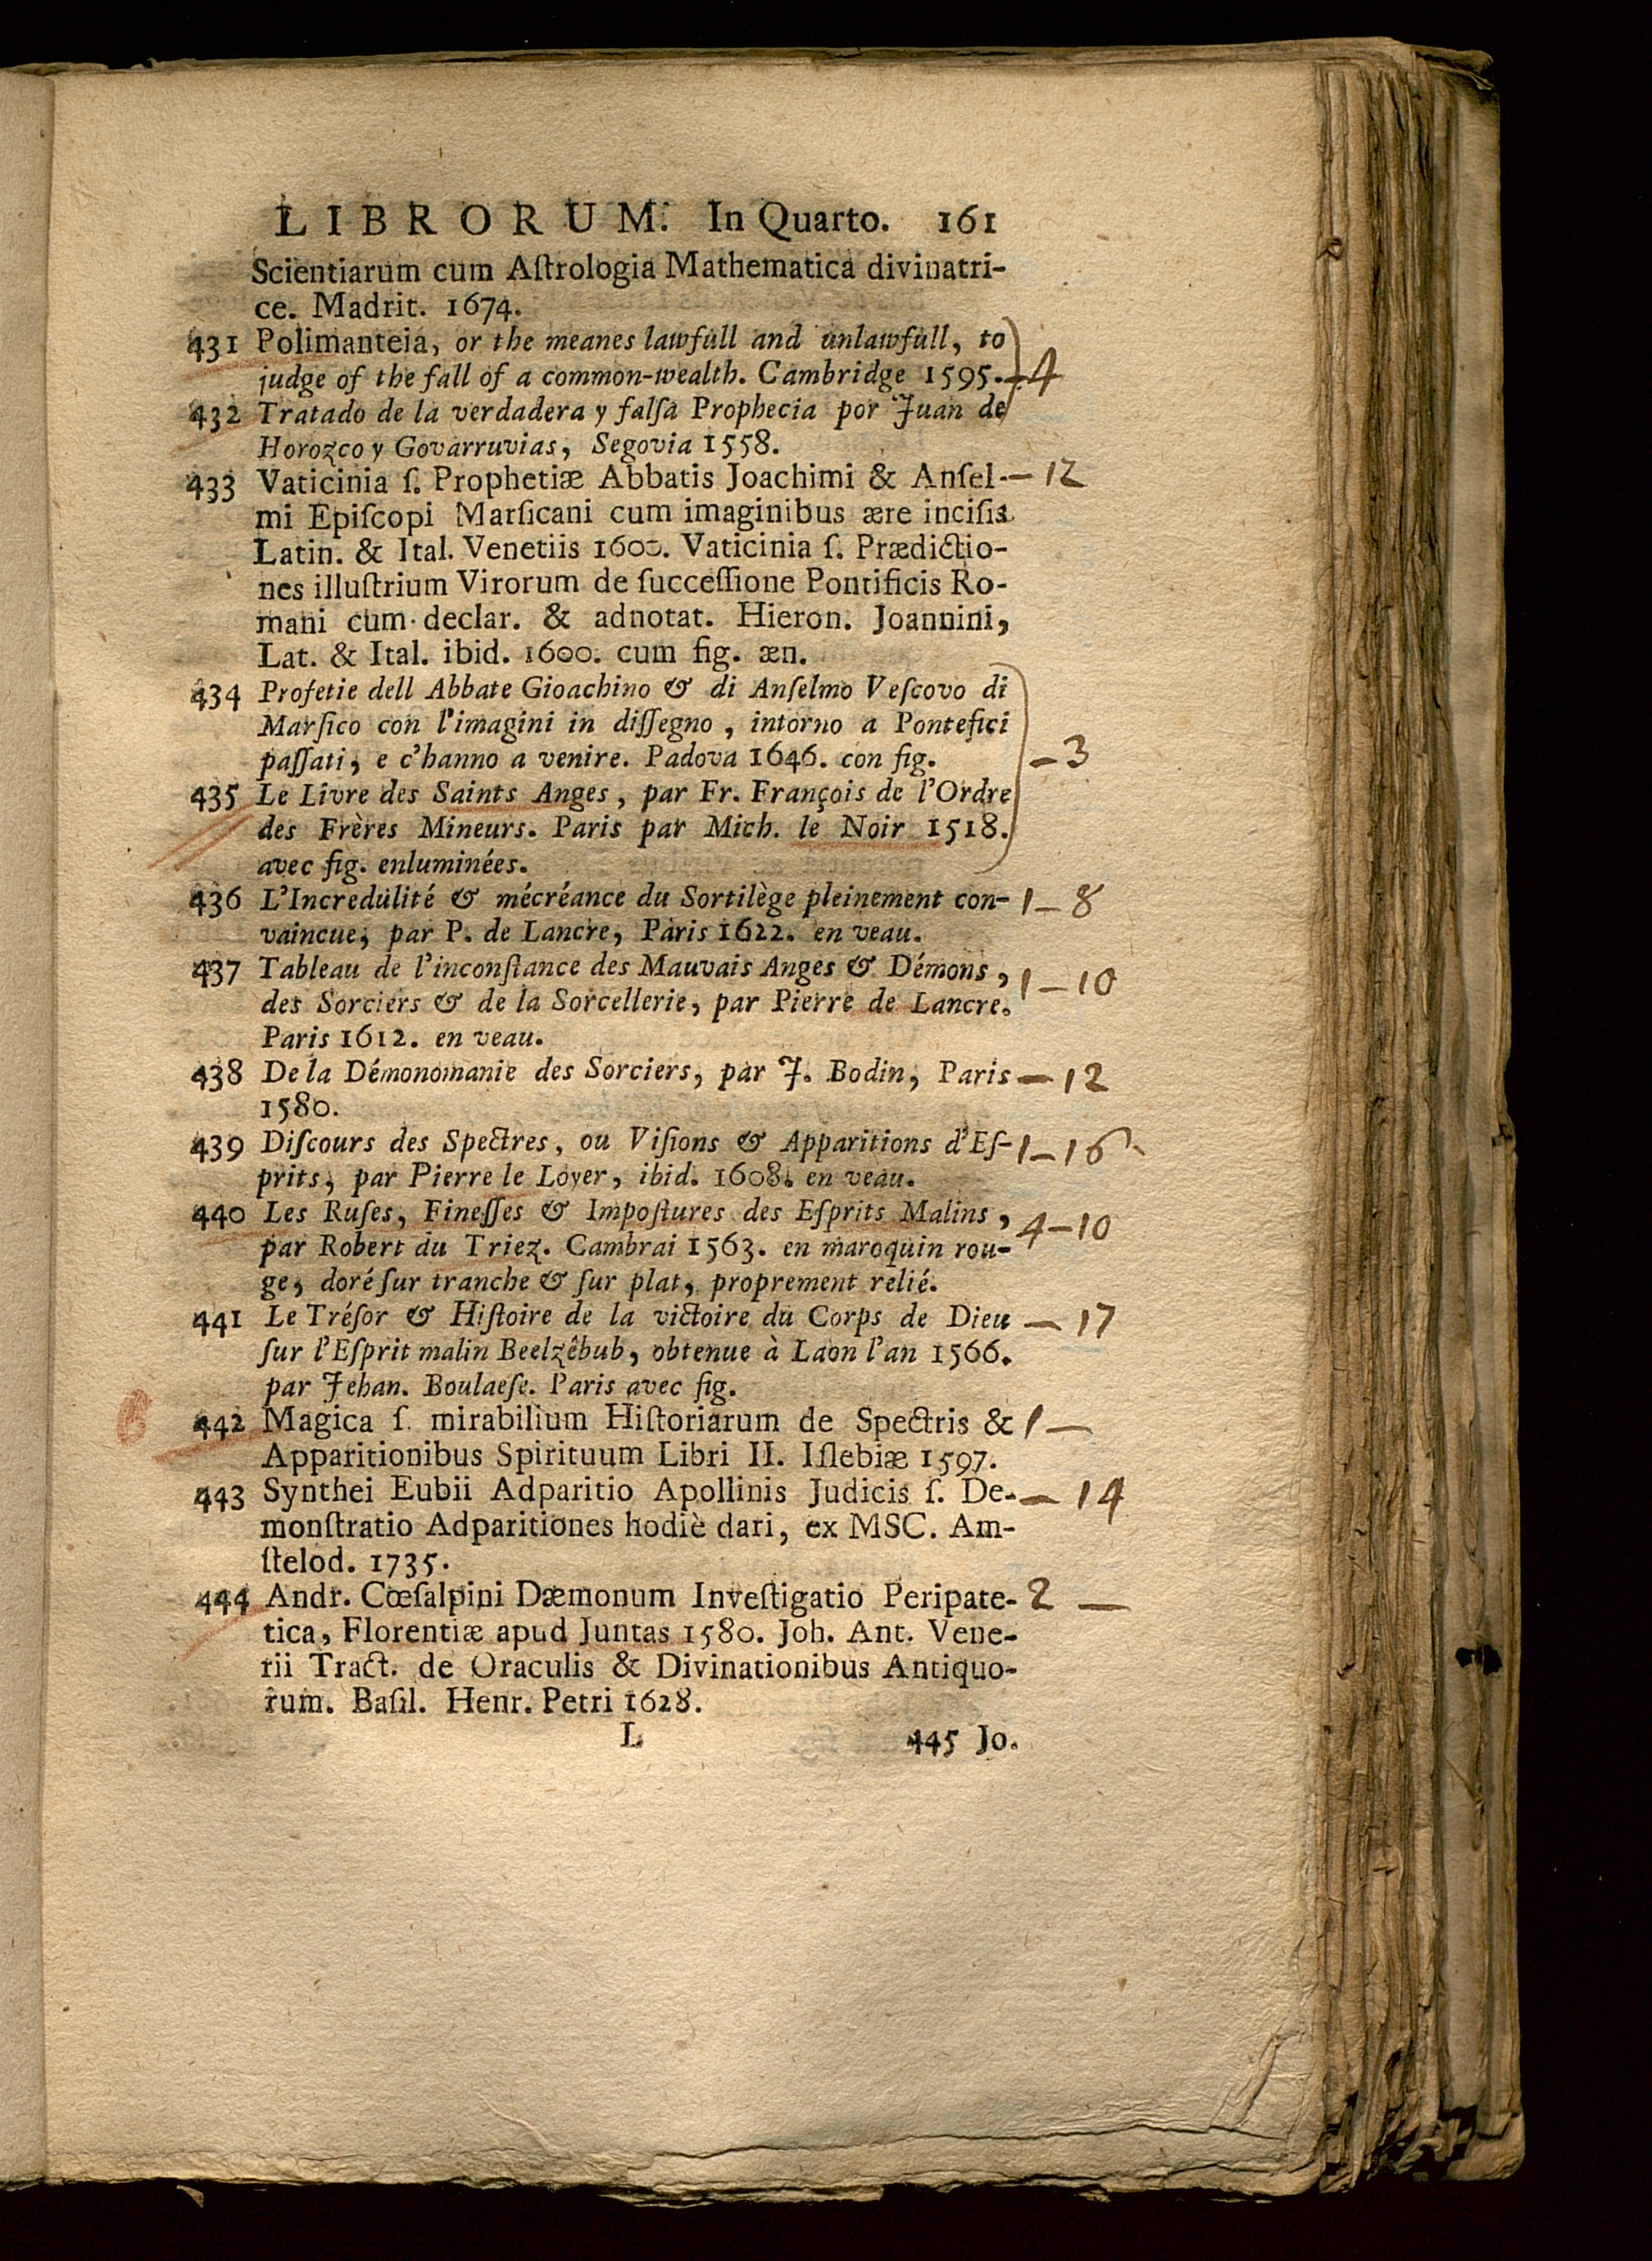 LIBRORUM. In Quarto. 161
Scientiarum cum Aſtrologia Mathematica divinatri-
ce. Madrit. 1674.
431 Polimanteia, or the meanes lawfull and unlawfull, to
judge of the fall of a common-wealth. Cambridge 1595. - 4
432 Tratado de la verdadera y falſa Prophecia por Juan de
Horozco y Govarruvias, Segovia 1558.
433 Vaticinia ſ. Prophetiæ Abbatis Joachimi & Anſel- — 12
mi Epiſcopi Marſicani cum imaginibus ære inciſis
Latin. & Ital. Venetiis 1600. Vaticinia ſ. Prædictio-
nes illuſtrium Virorum de ſucceſſione Pontificis Ro-
mani cum declar. & adnotat. Hieron. Joannini,
Lat. & Ital. ibid. 1600. cum fig. æn.
434 Profetie dell Abbate Gioachino & di Anſelmo Veſcovo di
Marſico con l'imagini in diſſegno, intorno a Pontefici
paſſati, e c'hanno a venire. Padova 1646. con fig. - 3
435 Le Livre des Saints Anges, par Fr. François de l'Ordre
des Frères Mineurs. Paris par Mich. le Noir 1518.
avec fig. enluminées.
436 L'Incredulité & mécréance du Sortilège pleinement con- 1 - 8
vaincue, par P. de Lancre, Paris 1622. en veau.
437 Tableau de l'inconſtance des Mauvais Anges & Démons, 1 - 10
des Sorciers & de la Sorcellerie, par Pierre de Lancre.
Paris 1612. en veau.
438 De la Démonomanie des Sorciers, par J. Bodin, Paris — 12
1580.
439 Diſcours des Spectres, ou Viſions & Apparitions d'Eſ- 1 - 16
prits, par Pierre le Loyer, ibid. 1608. en veau.
440 Les Ruſes, Fineſſes & Impoſtures des Eſprits Malins, 4 - 10
par Robert du Triez. Cambrai 1563. en maroquin rou-
ge, doré ſur tranche & ſur plat, proprement relié.
441 Le Tréſor & Hiſtoire de la victoire du Corps de Dieu — 17
ſur l'Eſprit malin Beelzêbub, obtenue à Laon l'an 1566.
par Jehan. Boulaeſe. Paris avec fig.
442 Magica ſ. mirabilium Hiſtoriarum de Spectris & 1 —
Apparitionibus Spirituum Libri II. Iſlebiæ 1597.
443 Synthei Eubii Adparitio Apollinis Judicis ſ. De- — 14
monſtratio Adparitiones hodiè dari, ex MSC. Am-
ſtelod. 1735.
444 Andr. Cœſalpini Dæmonum Inveſtigatio Peripate- 2 —
tica, Florentiæ apud Juntas 1580. Joh. Ant. Vene-
rii Tract. de Oraculis & Divinationibus Antiquo-
rum. Baſil. Henr. Petri 1628.
L 445 Jo.